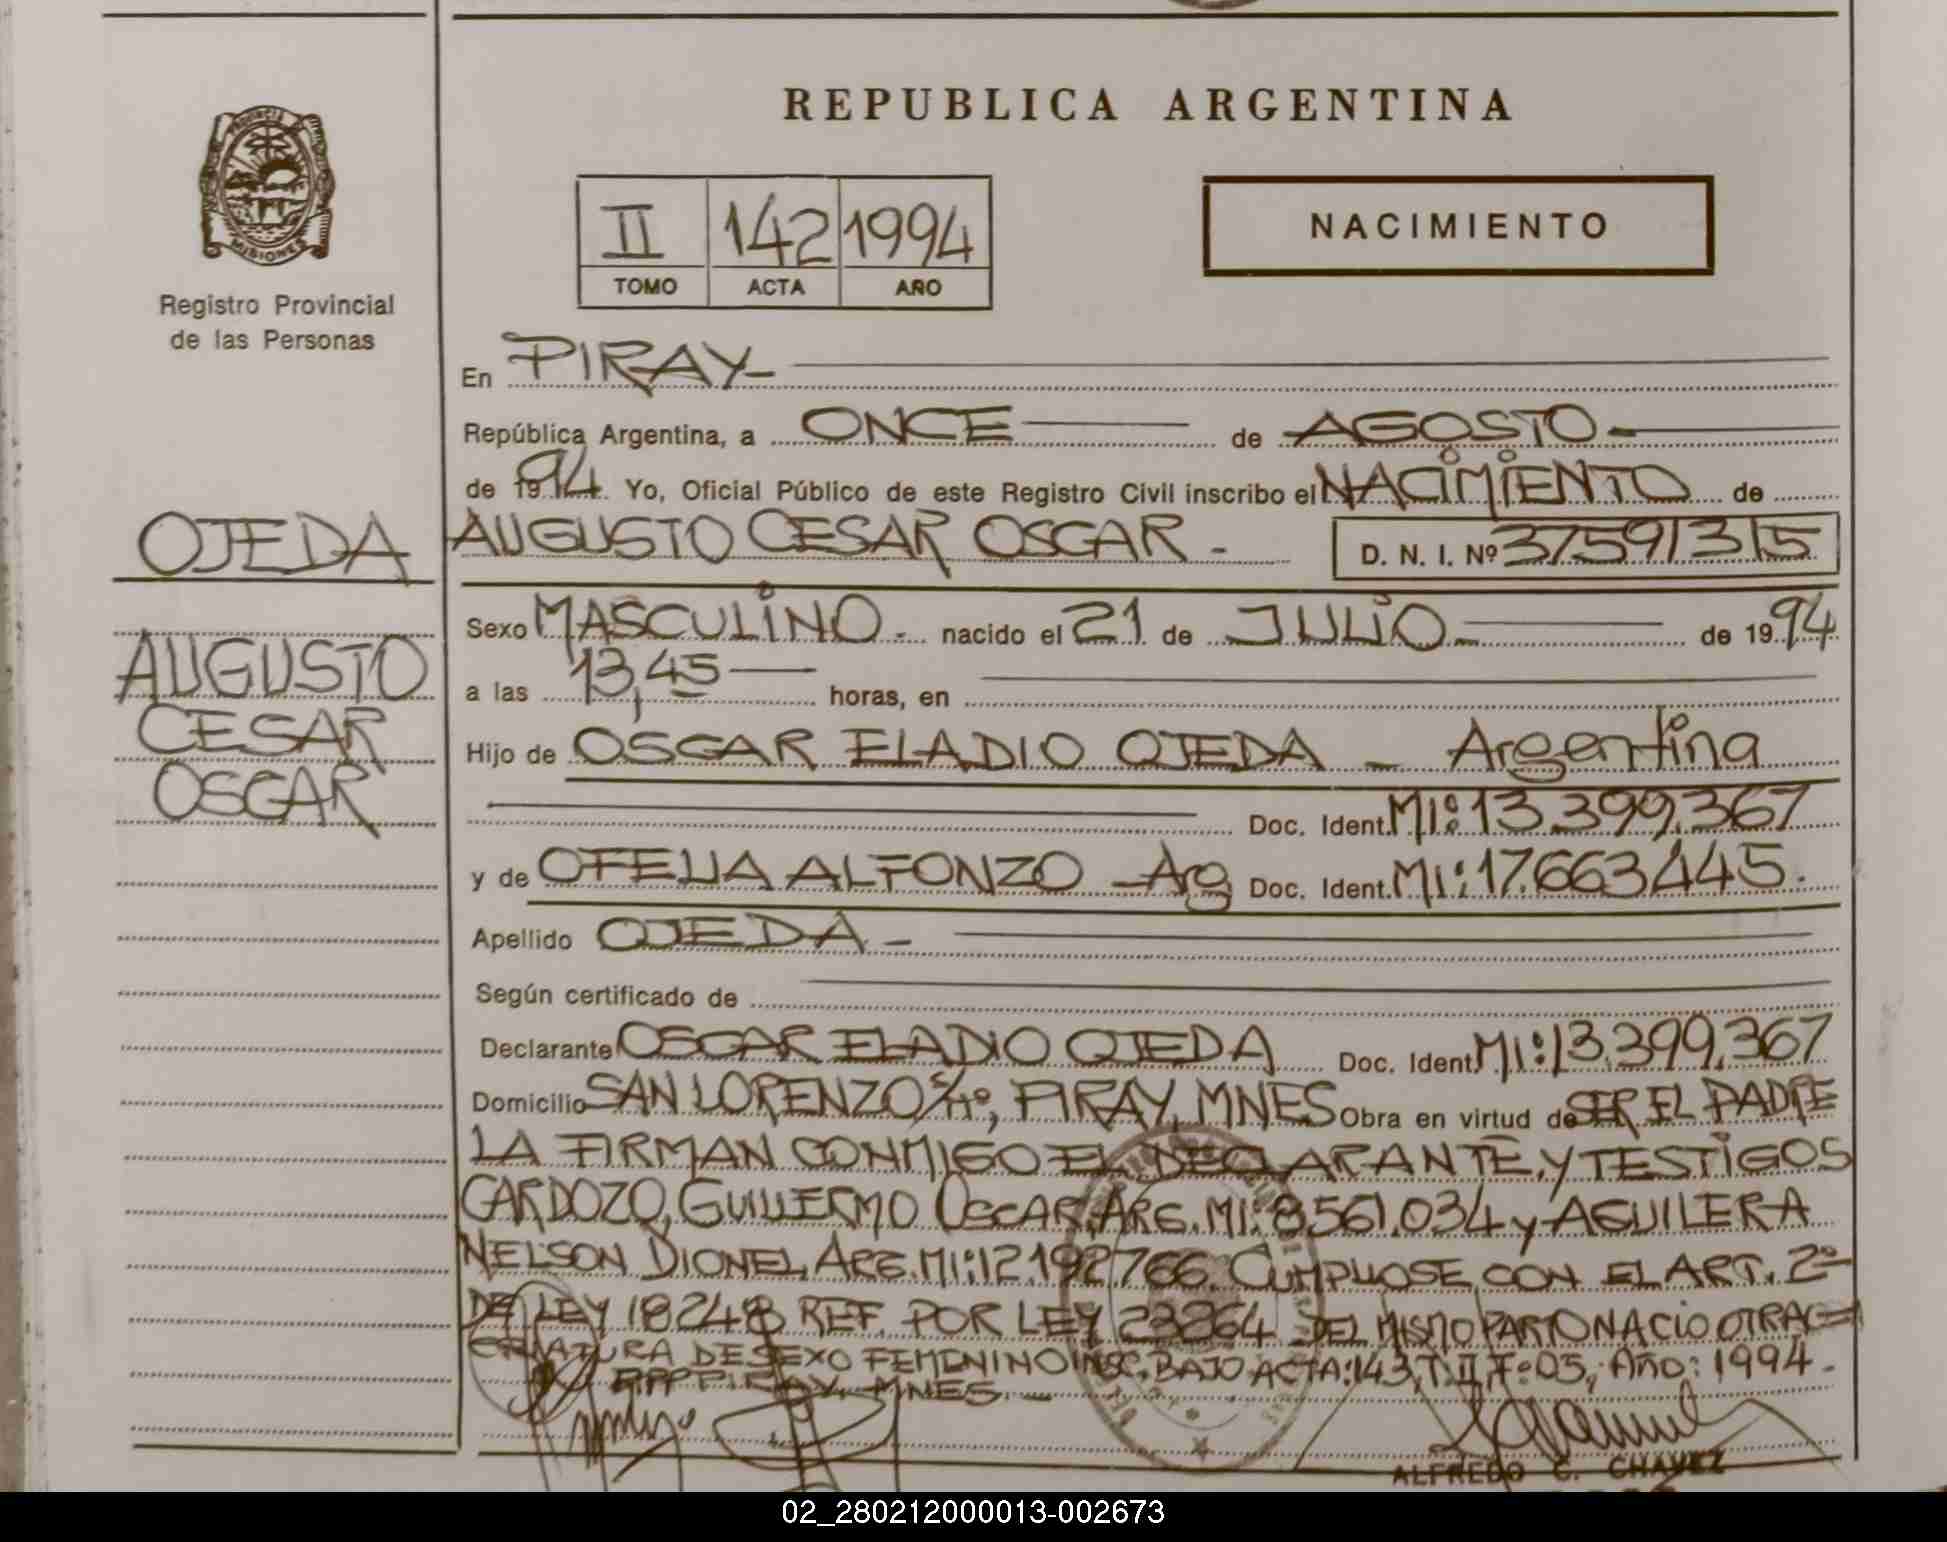 REPUBLICA ARGENTINA
PROVINCIA D MISIONES
Registro Provincial
de las Personas
II 142 1994
TOMO ACTA AÑO
NACIMIENTO
En PIRAY -
República Argentina, a ONCE de AGOSTO -
de 1994 Yo, Oficial Público de este Registro Civil inscribo el NACIMIENTO de
OJEDA AUGUSTO CESAR OSCAR - D. N. I. Nº 37591315
AUGUSTO
CESAR
OSCAR
Sexo MASCULINO - nacido el 21 de JULIO - de 1994
a las 13,45 horas, en
Hijo de OSCAR ELADIO OJEDA - Argentina
Doc. Ident. MI: 13.399.367
y de OFELIA ALFONZO - Arg Doc. Ident. MI: 17.663.445.
Apellido OJEDA -
Según certificado de
Declarante OSCAR ELADIO OJEDA Doc. Ident. MI: 13.399.367
Domicilio SAN LORENZO S/Nº, PIRAY, MNES Obra en virtud de SER EL PADRE
LA FIRMAN CONMIGO EL DECLARANTE, Y TESTIGOS
CARDOZO, GUILLERMO OSCAR, ARG. MI: 8561.034 y AGUILERA
NELSON DIONEL, ARG. MI: 12.192.766. CUMPLIOSE CON EL ART. 2º
DE LEY 18248 REF. POR LEY 23264 - DEL MISMO PARTO NACIO OTRA
CRIATURA DE SEXO FEMENINO INSC. BAJO ACTA: 143, T. II, F: 03, Año: 1994.
PIRAY, MNES. -
ALFREDO C. CHAVEZ
02_280212000013-002673